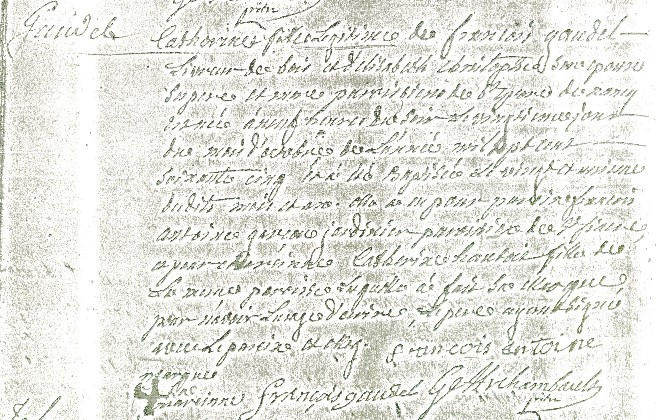 prtre
Gaudel
Catherine fille legitime de francois gaudel
de bois et delisabeth christophe son epouse
ses pere et mere paroissiens de St de nancy
est née à sept heures du soir le vingtieme jour
du mois d'octobre de l'année mil sept cent
soixante cinq et a été baptisée le vingt et unieme
dudit mois et an. elle a eu pour parein francois
antoine jardinier paroissien de St
et pour mareinne Catherine fille de
la meme paroisse laquelle a fait sa marque
pour usage d'ecrire, le pere ayant signé
avec le parein et moy. francois antoine
marque
de la
mareinne francois gaudel Archambault
prtre